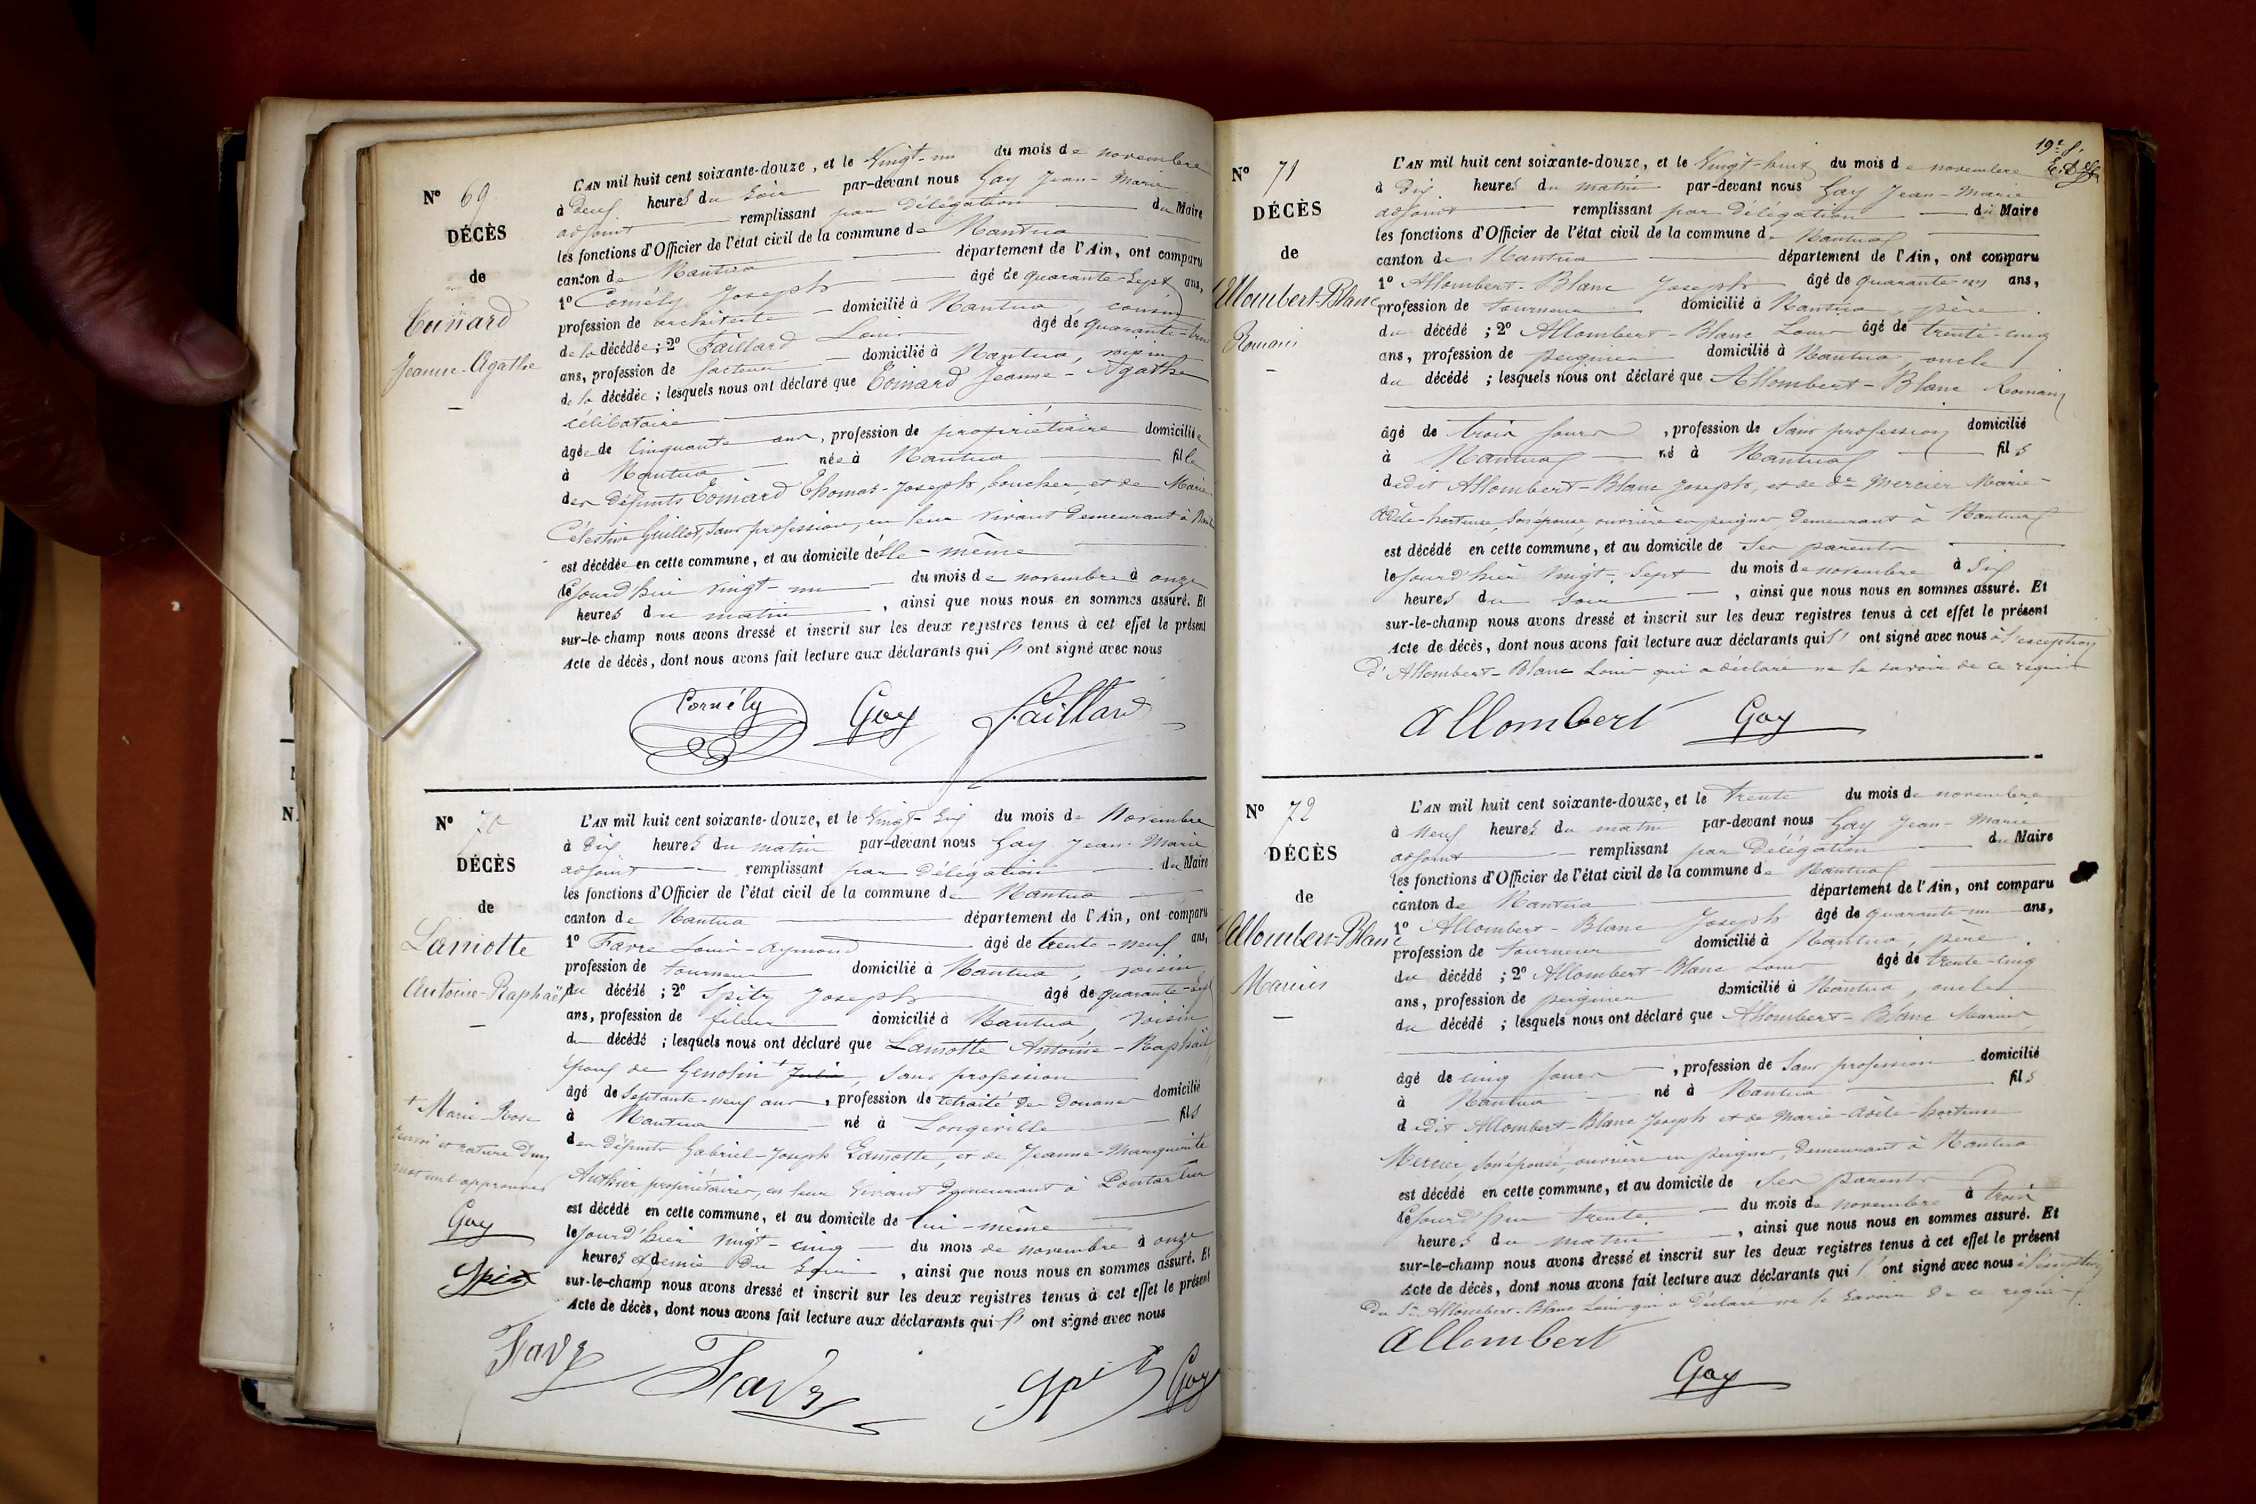 N° 69
DÉCÈS
de
Eoinard
Jeanne-Agathe
L'AN mil huit cent soixante-douze, et le Vingt-un du mois de novembre
à deux heures du soir par-devant nous Gay Jean-Marie
adjoint remplissant par délégation du Maire
les fonctions d'Officier de l'état civil de la commune de Nantua
canton de Nantua département de l'Ain, ont comparu
1° Cornély Joseph âgé de quarante-sept ans,
profession de architecte domicilié à Nantua, cousin
de la décédée; 2° Faillard Louis âgé de quarante-
ans, profession de facteur domicilié à Nantua, voisin
de la décédée; lesquels nous ont déclaré que Eoinard Jeanne-Agathe
célibataire
âgée de cinquante ans, profession de propriétaire domiciliée
à Nantua née à Nantua fille
des défunts Eoinard Thomas-Joseph, boucher, et de Marie
Célestine Guillot, sans profession, en leur vivant demeurant à
est décédée en cette commune, et au domicile d'elle-même
le jourd'hui vingt-un du mois de novembre à onze
heures du matin, ainsi que nous nous en sommes assuré. Et
sur-le-champ nous avons dressé et inscrit sur les deux registres tenus à cet effet le présent
Acte de décès, dont nous avons fait lecture aux déclarants qui ont signé avec nous
Cornély Gay Faillard
N° 70
DÉCÈS
de
Lamotte
Antoine-Raphaël
L'AN mil huit cent soixante-douze, et le Vingt-six du mois de Novembre
à dix heures du matin par-devant nous Gay Jean-Marie
adjoint remplissant par délégation du Maire
les fonctions d'Officier de l'état civil de la commune de Nantua
canton de Nantua département de l'Ain, ont comparu
1° Favre Louis-Aymond âgé de trente-neuf ans,
profession de tourneur domicilié à Nantua, voisin
du décédé; 2° Spitz Joseph âgé de quarante-
ans, profession de fileur domicilié à Nantua, voisin
du décédé; lesquels nous ont déclaré que Lamotte Antoine-Raphaël
époux de Genolin + Julie, sans profession
âgé de septante-neuf ans, profession de retraité des Douanes domicilié
à Nantua né à Longeville fils
des défunts Gabriel-Joseph Lamotte, et de Jeanne-Marguerite
Authier propriétaires, en leur vivant demeurant à Pontarlier
est décédé en cette commune, et au domicile de lui-même
le jourd'hier vingt-cinq du mois de novembre à onze
heures et demie du soir, ainsi que nous nous en sommes assuré. Et
sur-le-champ nous avons dressé et inscrit sur les deux registres tenus à cet effet le présent
Acte de décès, dont nous avons fait lecture aux déclarants qui ont signé avec nous
+ Marie-Rose
renvoi et rature d'un
mot nul approuvés
Gay
Spitz
Favre Favre Spitz Gay
19e f.
N° 71
DÉCÈS
de
Allombert-Blanc
Romain
L'AN mil huit cent soixante-douze, et le Vingt-huit du mois de novembre
à dix heures du matin par-devant nous Gay Jean-Marie
adjoint remplissant par délégation du Maire
les fonctions d'Officier de l'état civil de la commune de Nantua
canton de Nantua département de l'Ain, ont comparu
1° Allombert-Blanc Joseph âgé de quarante-un ans,
profession de tourneur domicilié à Nantua, père
du décédé; 2° Allombert-Blanc Louis âgé de trente-cinq
ans, profession de peigneur domicilié à Nantua, oncle
du décédé; lesquels nous ont déclaré que Allombert-Blanc Romain
âgé de trois jours, profession de sans profession domicilié
à Nantua né à Nantua fils
dedit Allombert-Blanc Joseph, et de de Mercier Marie-
Adèle-hortense, son épouse, ouvrière en peignes demeurant à Nantua
est décédé en cette commune, et au domicile de ses parents
le jourd'hier vingt-sept du mois de novembre à dix
heures du soir, ainsi que nous nous en sommes assuré. Et
sur-le-champ nous avons dressé et inscrit sur les deux registres tenus à cet effet le présent
Acte de décès, dont nous avons fait lecture aux déclarants qui ont signé avec nous à l'exception
d'Allombert-Blanc Louis qui a déclaré ne le savoir de ce requis
Allombert Gay
N° 72
DÉCÈS
de
Allombert-Blanc
Marius
L'AN mil huit cent soixante-douze, et le trente du mois de novembre
à neuf heures du matin par-devant nous Gay Jean-Marie
adjoint remplissant par délégation du Maire
les fonctions d'Officier de l'état civil de la commune de Nantua
canton de Nantua département de l'Ain, ont comparu
1° Allombert-Blanc Joseph âgé de quarante-un ans,
profession de tourneur domicilié à Nantua, père
du décédé; 2° Allombert-Blanc Louis âgé de trente-cinq
ans, profession de peigneur domicilié à Nantua, oncle
du décédé; lesquels nous ont déclaré que Allombert-Blanc Marius
âgé de cinq jours, profession de sans profession domicilié
à Nantua né à Nantua fils
dedit Allombert-Blanc Joseph et de Marie-Adèle-hortense
Mercier, son épouse, ouvrière en peignes, demeurant à Nantua
est décédé en cette commune, et au domicile de ses parents
le jourd'hui trente du mois de novembre à trois
heures du matin, ainsi que nous nous en sommes assuré. Et
sur-le-champ nous avons dressé et inscrit sur les deux registres tenus à cet effet le présent
Acte de décès, dont nous avons fait lecture aux déclarants qui ont signé avec nous à l'exception
du Sr Allombert-Blanc Louis qui a déclaré ne le savoir de ce requis
Allombert
Gay